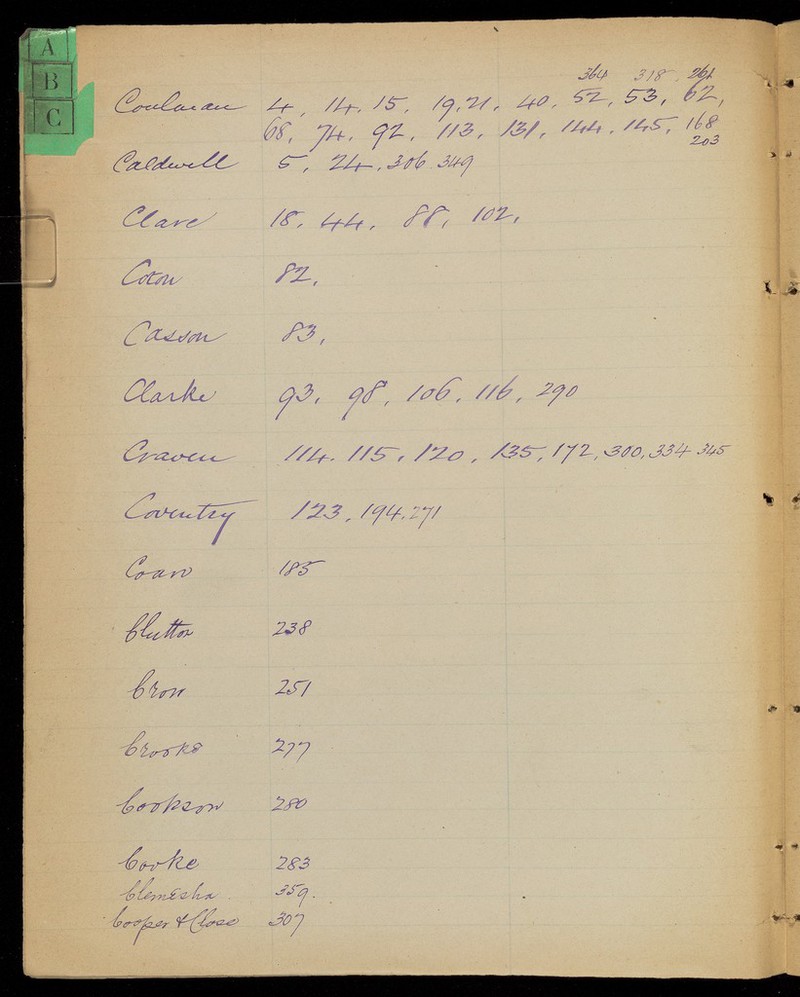 A
B
C
364 318. 261
Coulman 4, 14, 15, 19, 21, 40, 52, 53, 62,
68, 74, 92, 113, 131, 144, 145, 168
203
Caldwell 5, 24, 306 349
Clare 18, 44, 88, 102,
Coton 82,
Casson 83,
Clarke 93, 98, 106, 116, 290
Craven 114, 115, 120, 135, 172, 300, 334 345
Coventry 123, 194, 271
Coan 185
Clutton 238
Crow 251
Crooke 277
Cookson 280
Cooke 283
Clemesha 359.
Cooper & Close 307